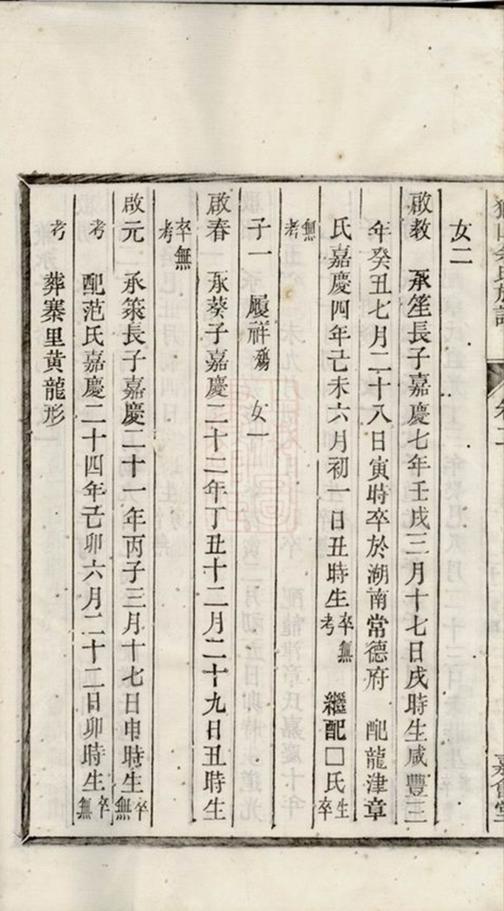 女二
啟教 承笙長子嘉慶七年壬戌三月十七日戌時生咸豐三
年癸丑七月二十八日寅時卒於湖南常德府 配龍津章
氏嘉慶四年己未六月初一日丑時生卒無考 繼配□氏生卒
無考
子一 履祥殤 女一
啟春 承葵子嘉慶二十二年丁丑十二月二十九日丑時生
卒無考
啟元 承策長子嘉慶二十一年丙子三月十七日申時生卒無
考 配范氏嘉慶二十四年己卯六月二十二日卯時生卒無
考 葬寨里黃龍形